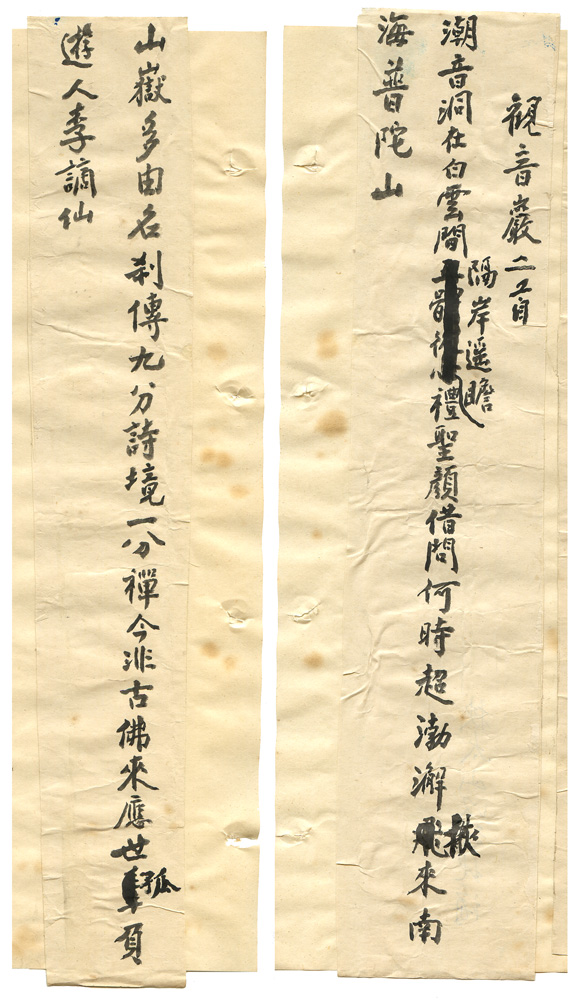 觀音巖二首
潮音洞在白雲間隔岸遥瞻禮聖顏借問何時超渤澥來南
海普陀山
山嶽多由名刹傳九分詩境一分禪今非古佛來應世孤負
遊人李謫仙